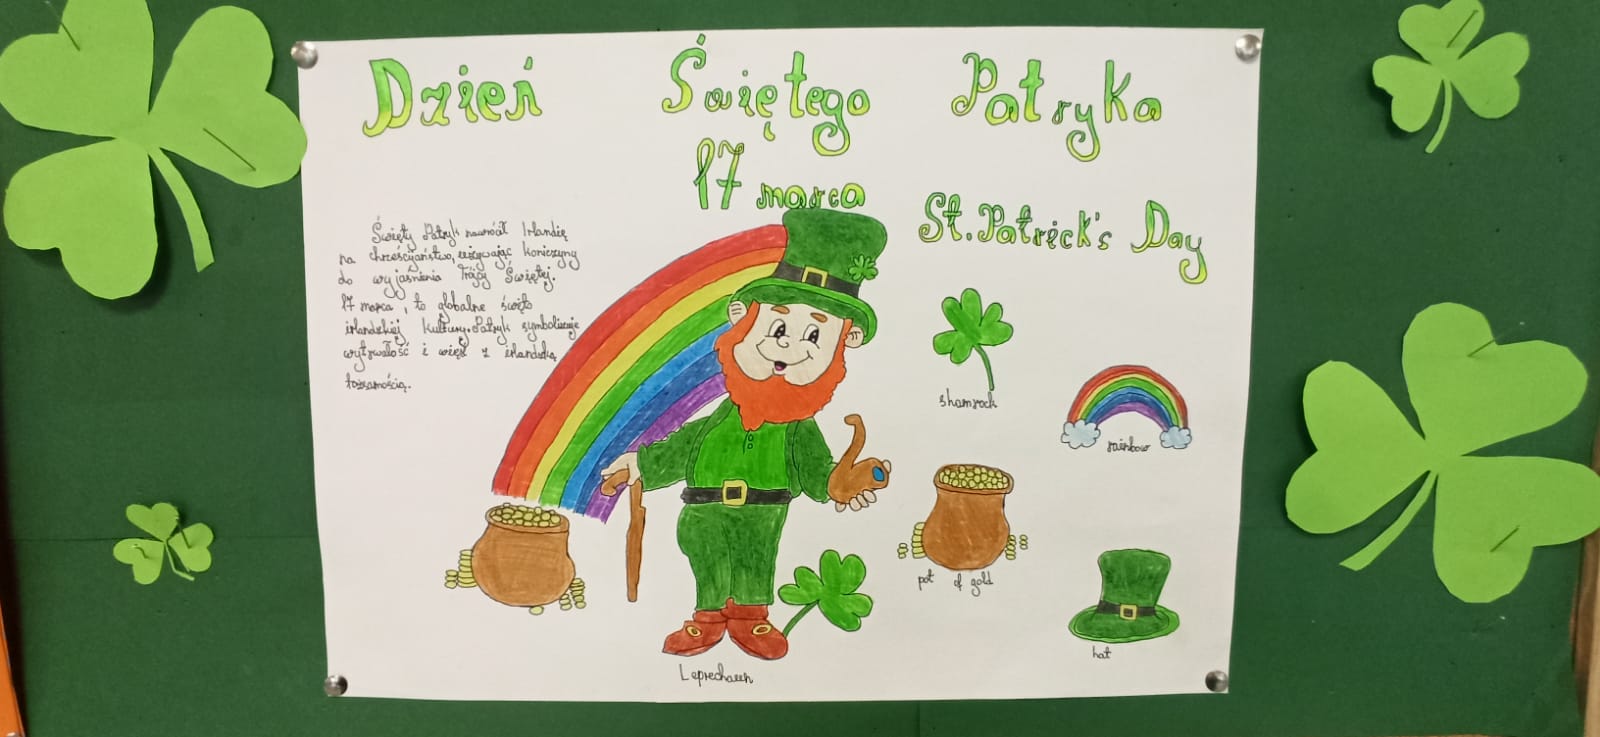 Dzień Świętego Patryka
17 marca
St. Patrick's Day
Święty Patryk nawrócił Irlandię
na chrześcijaństwo, używając koniczyny
do wyjaśnienia Trójcy Świętej.
17 marca, to globalne święto
irlandzkiej kultury. Patryk symbolizuje
wytrwałość i więź z irlandzką
tożsamością.
shamrock
rainbow
pot of gold
hat
Leprechaun